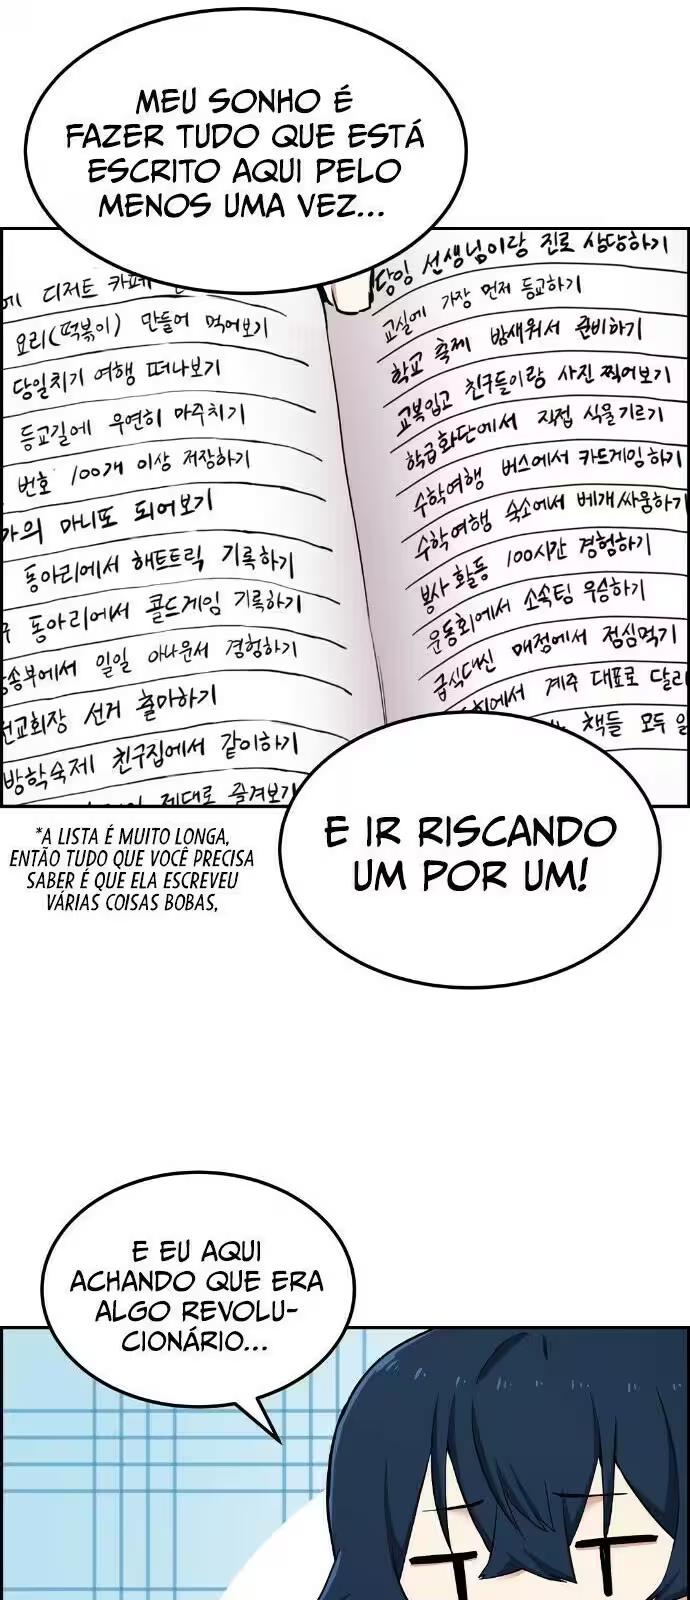 MEU SONHO É
FAZER TUDO QUE ESTÁ
ESCRITO AQUI PELO
MENOS UMA VEZ...
에 디저트 카페
요리(떡볶이) 만들어 먹어보기
당일치기 여행 떠나보기
등교길에 우연히 마주치기
번호 100개 이상 저장하기
가의 마니또 되어보기
동아리에서 해트트릭 기록하기
구 동아리에서 콜드게임 기록하기
송부에서 일일 아나운서 경험하기
전교회장 선거 출마하기
방학숙제 친구집에서 같이하기
제대로 즐겨보기
담임 선생님이랑 진로 상담하기
교실에 가장 먼저 등교하기
학교 축제 밤새워서 준비하기
교복입고 친구들이랑 사진 찍어보기
학급화단에서 직접 식물기르기
수학여행 버스에서 카드게임하기
수학여행 숙소에서 베개싸움하기
봉사활동 100시간 경험하기
운동회에서 소속팀 우승하기
급식대신 매점에서 점심먹기
회에서 계주 대표로 달리
책들 모두 일
*A LISTA É MUITO LONGA,
ENTÃO TUDO QUE VOCÊ PRECISA
SABER É QUE ELA ESCREVEU
VÁRIAS COISAS BOBAS,
E IR RISCANDO
UM POR UM!
E EU AQUI
ACHANDO QUE ERA
ALGO REVOLU-
CIONÁRIO...